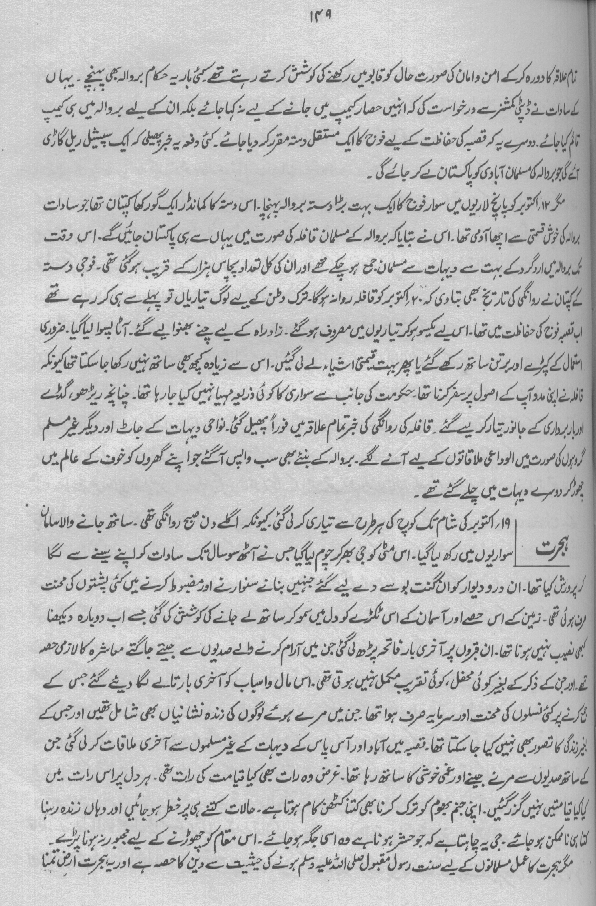 ۱۴۹
تمام علاقہ کا دورہ کر کے امن و امان کی صورت حال کو قابو میں رکھنے کی کوشش کرتے رہتے تھے کئی بار یہ حکام بروالہ بھی پہنچے ۔ یہاں
کے سادات نے ڈپٹی کمشنر سے درخواست کی کہ انہیں حصار کیمپ میں جانے کے لیے نہ کہا جائے بلکہ ان کے لیے بروالہ میں ہی کیمپ
قائم کیا جائے۔ دوسرے یہ کہ قصبہ کی حفاظت کے لیے فوج کا ایک مستقل دستہ مقرر کر دیا جائے۔ کئی دفعہ یہ خبر پھیلی کہ ایک سپیشل ریل گاڑی
آئے گی جو بروالہ کی مسلمان آبادی کو پاکستان لے کر جائے گی ۔
مگر ۱۲ اکتوبر کو پانچ لاریوں میں سوار فوج کا ایک بہت بڑا دستہ بروالہ پہنچا۔ اس دستہ کا کمانڈر ایک گورکھا کپتان تھا جو سادات
بروالہ کی خوش قسمتی سے اچھا آدمی تھا۔ اس نے بتایا کہ بروالہ کے مسلمان قافلہ کی صورت میں یہاں سے ہی پاکستان جائیں گے۔ اس وقت
تک بروالہ میں اردگرد کے بہت سے دیہات سے مسلمان جمع ہو چکے تھے اور ان کی کل تعداد پچاس ہزار کے قریب ہو گئی تھی۔ فوجی دستہ
کے کپتان نے روانگی کی تاریخ بھی بتا دی کہ ۲۰ اکتوبر کو قافلہ روانہ ہو گا۔ ترک وطن کے لیے لوگ تیاریاں تو پہلے سے ہی کر رہے تھے
اب قصبہ فوج کی حفاظت میں تھا۔ اس لیے یکسو ہو کر تیاریوں میں مصروف ہو گئے۔ زاد راہ کے لیے چنے بھنوا لیے گئے۔ آٹا پسوا لیا گیا۔ ضروری
استعمال کے کپڑے اور برتن ساتھ رکھے گئے یا پھر بہت قیمتی اشیاء لے لی گئیں۔ اس سے زیادہ کچھ بھی ساتھ نہیں رکھا جا سکتا تھا کیونکہ
قافلہ نے اپنی مدد آپ کے اصول پر سفر کرنا تھا۔ حکومت کی جانب سے سواری کا کوئی ذریعہ مہیا نہیں کیا جا رہا تھا۔ چنانچہ ریڑھو، گڈے
اور باربرداری کے جانور تیار کر لیے گئے ۔ قافلہ کی روانگی کی خبر تمام علاقہ میں فوراً پھیل گئی۔ نواحی دیہات کے جاٹ اور دیگر غیر مسلم
گروہوں کی صورت میں الوداعی ملاقاتوں کے لیے آنے لگے۔ بروالہ کے بنئے بھی سب واپس آ گئے جو اپنے گھروں کو خوف کے عالم میں
چھوڑ کر دوسرے دیہات میں چلے گئے تھے ۔
ہجرت
۱۹؍ اکتوبر کی شام تک کوچ کی ہر طرح سے تیاری کر لی گئی۔ کیونکہ اگلے دن صبح روانگی تھی۔ ساتھ جانے والا سامان
سواریوں میں رکھ لیا گیا۔ اس مٹی کو جی بھر کر چوم لیا گیا جس نے آٹھ سو سال تک سادات کو اپنے سینے سے لگا
کر پرورش کیا تھا۔ ان در و دیوار کو ان گنت بوسے دے لیے گئے جنہیں بنانے سنوارنے اور مضبوط کرنے میں کئی پشتوں کی محنت
صرف ہوئی تھی۔ زمین کے اس حصے اور آسمان کے اس ٹکڑے کو دل میں سمو کر ساتھ لے جانے کی کوشش کی گئی جسے اب دوبارہ دیکھنا
کبھی نصیب نہیں ہونا تھا۔ ان قبروں پر آخری بار فاتحہ پڑھ لی گئی جن میں آرام کرنے والے صدیوں سے جیتے جاگتے معاشرہ کا لازمی حصہ
تھے۔ اور جن کے ذکر کے بغیر کوئی محفل، کوئی تقریب مکمل نہیں ہوتی تھی۔ اس مال و اسباب کو آخری بار تالے لگا دیئے گئے جس کے
جمع کرنے پر کئی نسلوں کی محنت اور سرمایہ صرف ہوا تھا۔ جن میں مرے ہوئے لوگوں کی زندہ نشانیاں بھی شامل تھیں اور جس کے
بغیر زندگی کا تصور بھی نہیں کیا جا سکتا تھا۔ قصبہ میں آباد اور آس پاس کے دیہات کے غیر مسلموں سے آخری ملاقات کر لی گئی جن
کے ساتھ صدیوں سے مرنے جینے اور غمی خوشی کا ساتھ رہا تھا۔ غرض وہ رات بھی کیا قیامت کی رات تھی۔ ہر دل پر اس رات میں
کیا کیا قیامتیں نہیں گزر گئیں۔ اپنی جنم بھوم کو ترک کرنا بھی کتنا کٹھن کام ہوتا ہے۔ حالات کتنے ہی پر خطر ہو جائیں اور وہاں زندہ رہنا
کتنا ہی نا ممکن ہو جائے۔ جی یہ چاہتا ہے کہ جو حشر ہونا ہے وہ اسی جگہ ہو جائے۔ اس مقام کو چھوڑنے کے لیے مجبور نہ ہونا پڑے۔
مگر ہجرت کا عمل مسلمانوں کے لیے سنت رسول مقبول صلی اللہ علیہ وسلم ہونے کی حیثیت سے دین کا حصہ ہے اور یہ ہجرت ارض تمنا